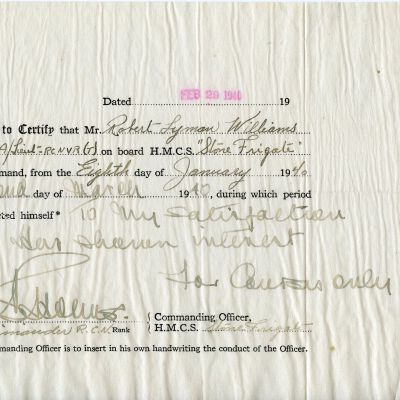 FEB 29 1940
Dated 19
to Certify that Mr. Robert Lyman Williams
A/Lieut-RCNVR(s) on board H.M.C.S. "Stone Frigate"
mand, from the Eighth day of January 1940
day of March 1940, during which period
cted himself* To my satisfaction
Has shown interest
For Census only
Commanding Officer,
mmander R.C.N. Rank H.M.C.S. Stone Frigate
manding Officer is to insert in his own handwriting the conduct of the Officer.